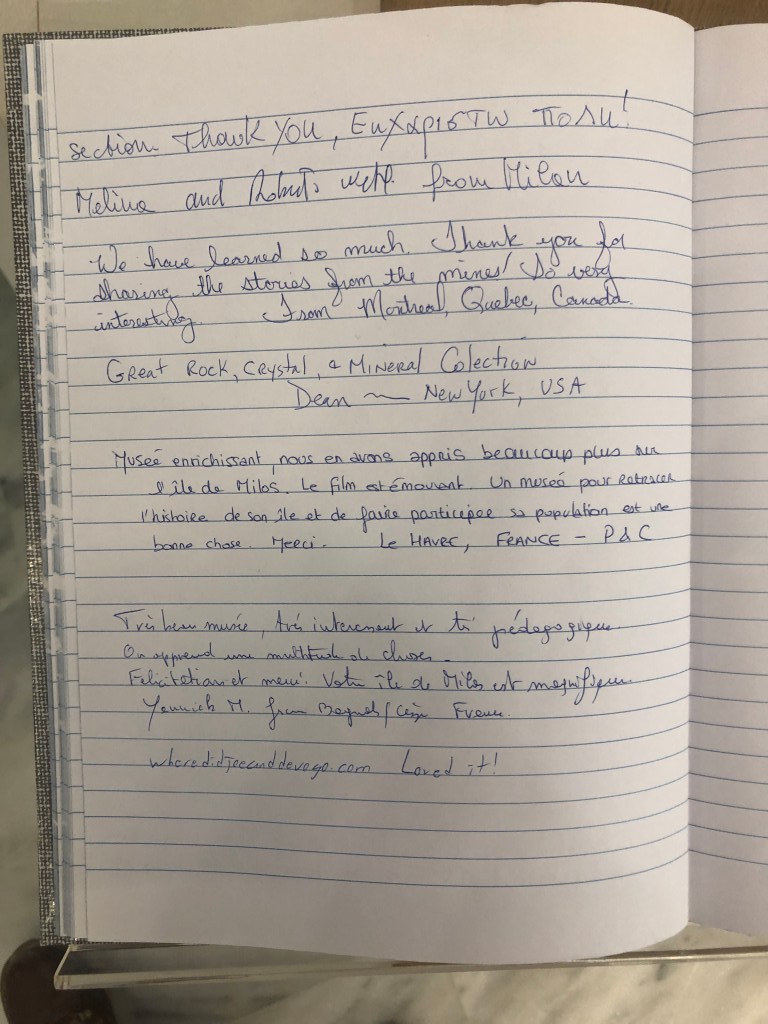 section. Thank you, Ευχαριστω πολυ!
Melina and from Milan
We have learned so much. Thank you for
sharing the stories from the mines! So very
interesting From Montreal, Quebec, Canada.
Great Rock, Crystal, & Mineral Colection
Dean — New York, USA
Museé enrichissant, nous en avons appris beaucoup plus sur
l'île de Milos. Le film est émouvant. Un museé pour retracer
l'histoire de son île et de faire participer sa population est une
bonne chose. Merci. Le HAVRE, FRANCE - P & C
Très beau musée, très interessant et très pédagogique.
On apprend une multitude de choses.
Felicitation et merci. Votre île de Milos est magnifique.
Yannick M. from Bagnols/Cèze France.
wheredidjeeanddevego.com Loved it!